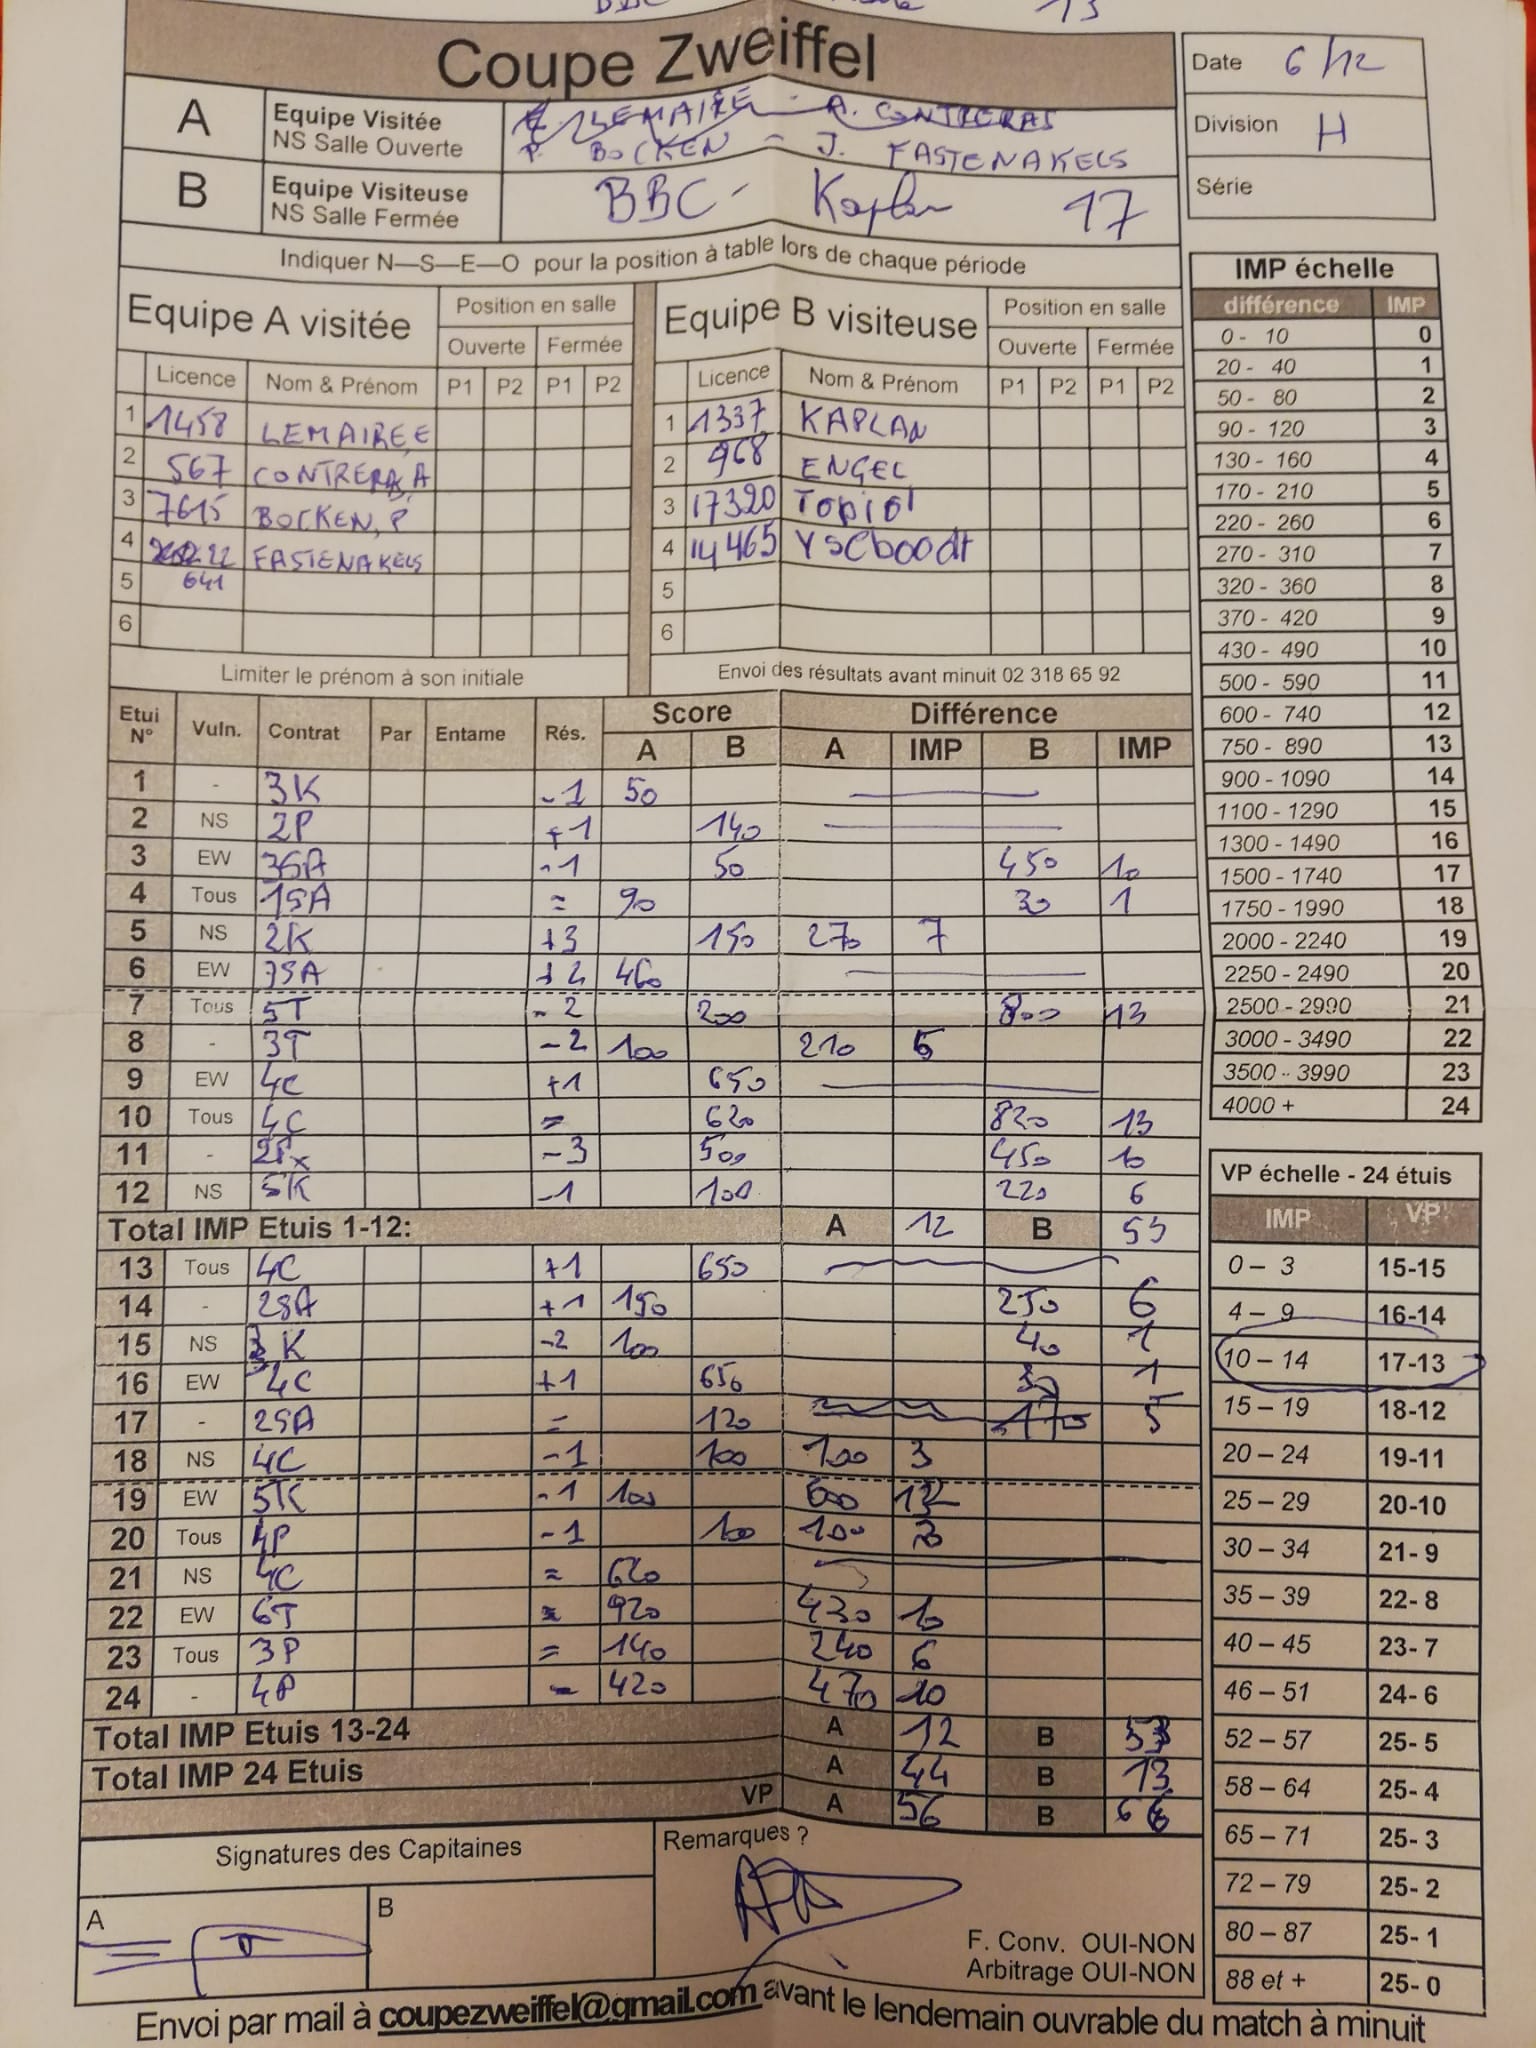 Coupe Zweiffel
Date 6/12
A Equipe Visitée
NS Salle Ouverte
E. LEMAIRE - A. CONTRERAS
P. BOCKEN - J. FASTENAKELS
Division H
B Equipe Visiteuse
NS Salle Fermée
BBC - Kaplan 17
Série
Indiquer N—S—E—O pour la position à table lors de chaque période
Equipe A visitée Position en salle Equipe B visiteuse Position en salle
Ouverte Fermée Ouverte Fermée
Licence Nom & Prénom P1 P2 P1 P2 Licence Nom & Prénom P1 P2 P1 P2
1 1458 LEMAIRE, E 1 1337 KAPLAN
2 567 CONTRERAS, A 2 968 ENGEL
3 7615 BOCKEN, P 3 17320 Topiol
4 FASTENAKELS 4 14465 YSEboodt
5 641 5
6 6
Limiter le prénom à son initiale Envoi des résultats avant minuit 02 318 65 92
Etui N° Vuln. Contrat Par Entame Rés. Score Différence
A B A IMP B IMP
1 - 3K -1 50
2 NS 2P +1 140
3 EW 3SA -1 50 450 10
4 Tous 1SA = 90 30 1
5 NS 2K +3 150 270 7
6 EW 3SA +2 460
7 Tous 5T -2 200 800 13
8 - 3T -2 100 210 5
9 EW 4C +1 650
10 Tous 4C = 620 820 13
11 - 2Px -3 500 450 10
12 NS 5K -1 100 220 6
Total IMP Etuis 1-12: A 12 B 53
13 Tous 4C +1 650
14 - 2SA +1 150 250 6
15 NS 3K -2 100 40 1
16 EW 4C +1 650 30 1
17 - 2SA = 120 170 5
18 NS 4C -1 100 100 3
19 EW 5K -1 100 600 12
20 Tous 4P -1 100 100 3
21 NS 4C = 620
22 EW 6T = 920 430 10
23 Tous 3P = 140 240 6
24 - 4P = 420 470 10
Total IMP Etuis 13-24 A 12 B 53
Total IMP 24 Etuis A 44 B 13
VP A 56 B 66
Signatures des Capitaines
A
B
Remarques ?
F. Conv. OUI-NON
Arbitrage OUI-NON
IMP échelle
différence IMP
0 - 10 0
20 - 40 1
50 - 80 2
90 - 120 3
130 - 160 4
170 - 210 5
220 - 260 6
270 - 310 7
320 - 360 8
370 - 420 9
430 - 490 10
500 - 590 11
600 - 740 12
750 - 890 13
900 - 1090 14
1100 - 1290 15
1300 - 1490 16
1500 - 1740 17
1750 - 1990 18
2000 - 2240 19
2250 - 2490 20
2500 - 2990 21
3000 - 3490 22
3500 - 3990 23
4000 + 24
VP échelle - 24 étuis
IMP VP
0 – 3 15-15
4 – 9 16-14
10 – 14 17-13
15 – 19 18-12
20 – 24 19-11
25 – 29 20-10
30 – 34 21- 9
35 – 39 22- 8
40 – 45 23- 7
46 – 51 24- 6
52 – 57 25- 5
58 – 64 25- 4
65 – 71 25- 3
72 – 79 25- 2
80 – 87 25- 1
88 et + 25- 0
Envoi par mail à coupezweiffel@gmail.com avant le lendemain ouvrable du match à minuit